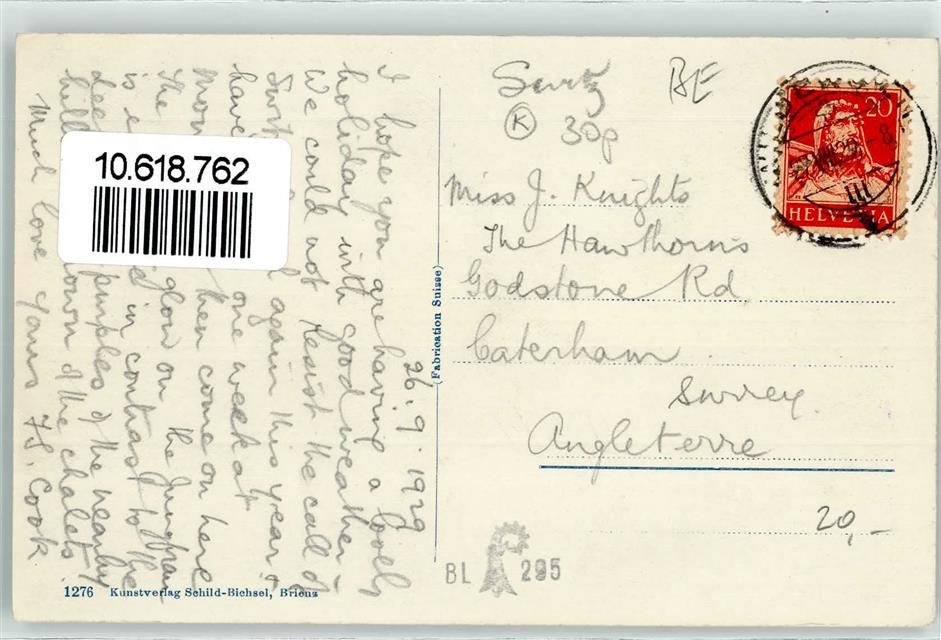 26.9.1929
I hope you are having a lovely
holiday with good weather -
We could not resist the call of
again this year &
have one week at
then come on here
The glow on the Jungfrau
is in contrast to the
purples of the nearby
hill of the chalets.
Much love yours F.S. Cook
10.618.762
BE
K
30p
Miss J. Knights
The Hawthorns
Godstone Rd
Caterham
Surrey.
Angleterre
20,-
20
HELVETIA
(Fabrication Suisse)
BL 295
1276 Kunstverlag Schild-Bichsel, Brienz